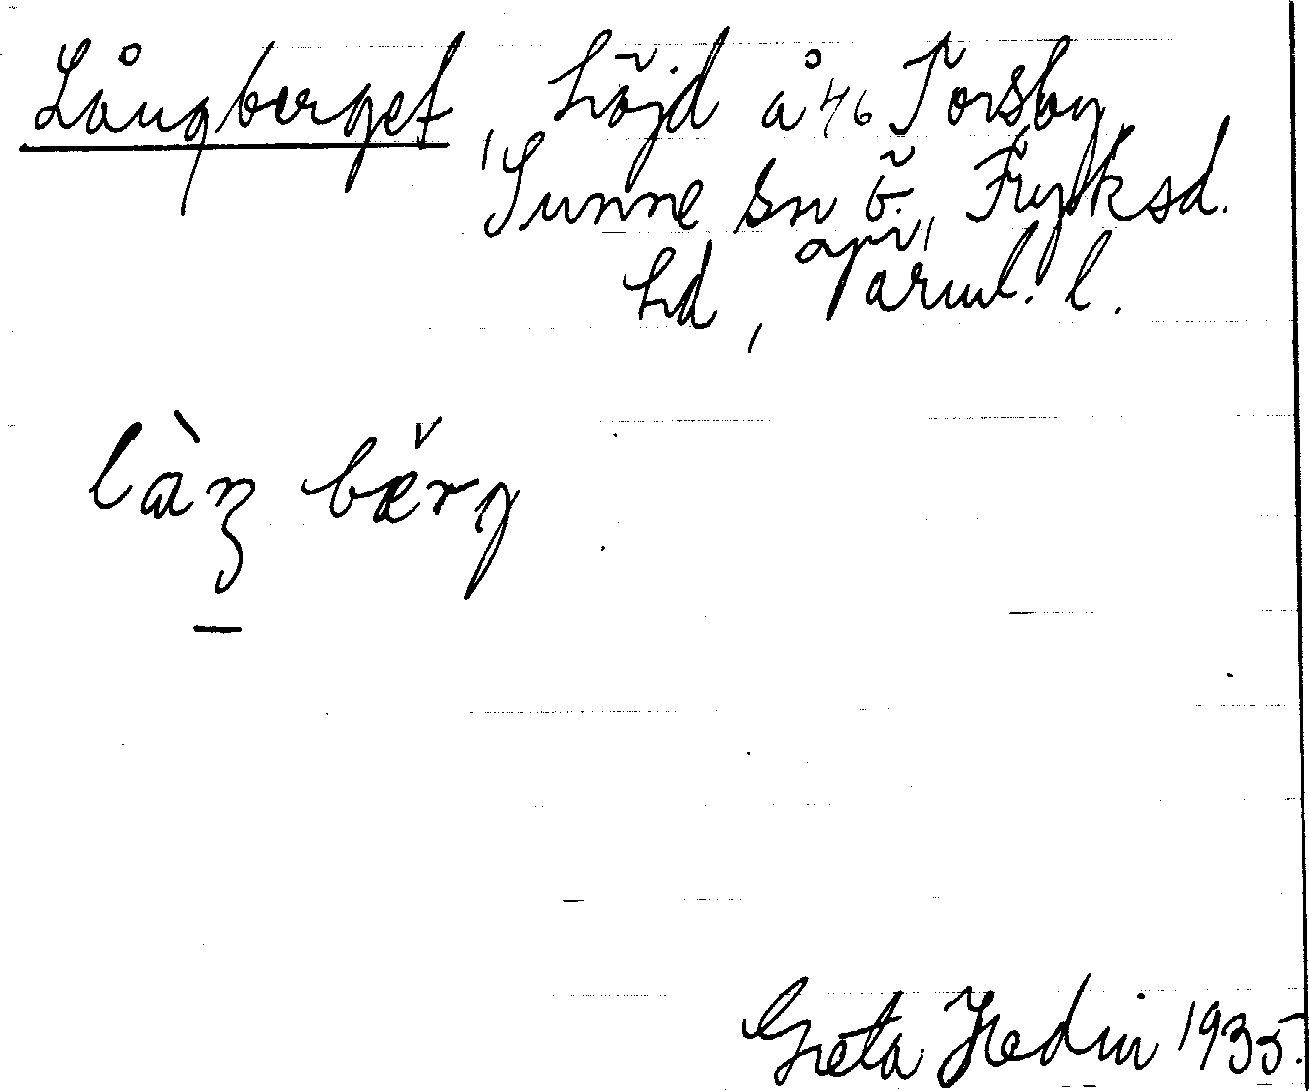 Långberget, höjd å 46 Torsby,
Sunne sn Ö. Fryksd.
hd, Värml. l.
làŋ bǽrg
Greta Hedin 1935.